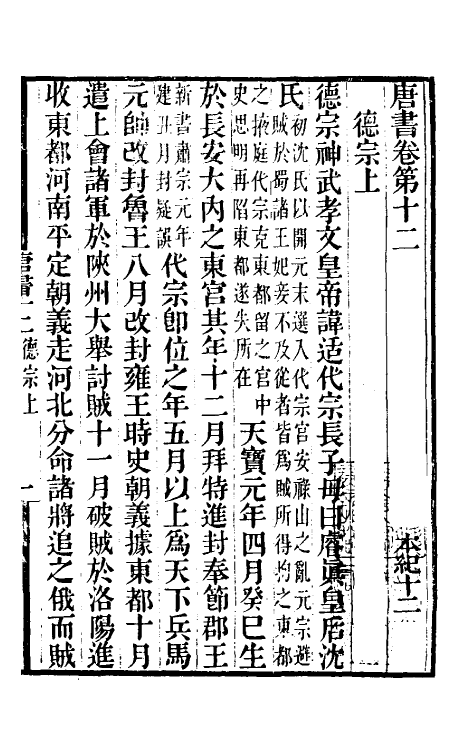 唐書卷第十二　本紀十二
德宗上
德宗神武孝文皇帝諱适代宗長子母曰睿眞皇后沈
氏初沈氏以開元末選入代宗宫安祿山之亂元宗避
賊於蜀諸王妃妾不及從者皆爲賊所得拘之東都
之掖庭代宗克東都留之宫中
史思明再陷東都遂失所在
天寶元年四月癸巳生
於長安大內之東宮其年十二月拜特進封奉節郡王
新書肅宗元年
建丑月封疑誤
代宗卽位之年五月以上爲天下兵馬
元帥改封魯王八月改封雍王時史朝義據東都十月
遣上會諸軍於陝州大舉討賊十一月破賊於洛陽進
收東都河南平定朝義走河北分命諸將追之俄而賊
唐書十二德宗上　一